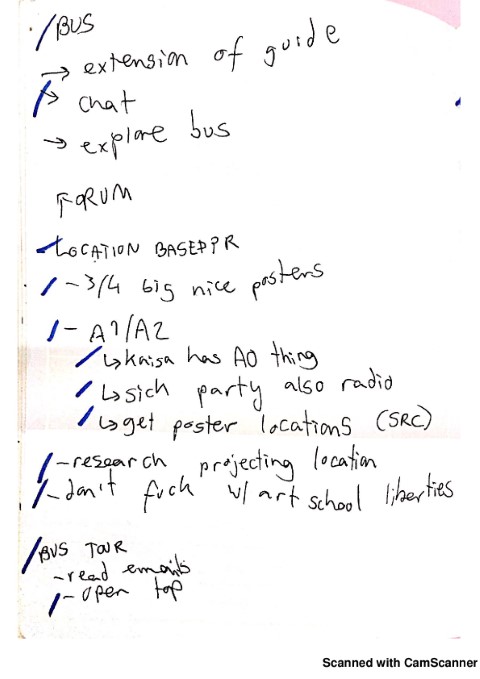 BUS
→ extension of guide
→ chat
→ explore bus
FORUM
LOCATION BASED PR
- 3/4 big nice posters
- A1/A2
↳ kaisa has A0 thing
↳ sich party also radio
↳ get poster locations (SRC)
- research projecting location
- don't fuck w/ art school liberties
BUS TOUR
- read emails
- open top
Scanned with CamScanner